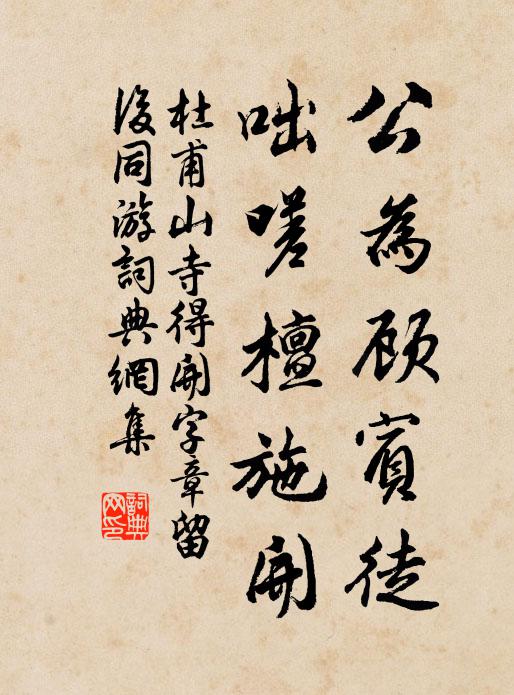 公為顧賓徒
咄嗟檀施開
杜甫山寺得開字章留
後同游詞典網集
詞典
网印